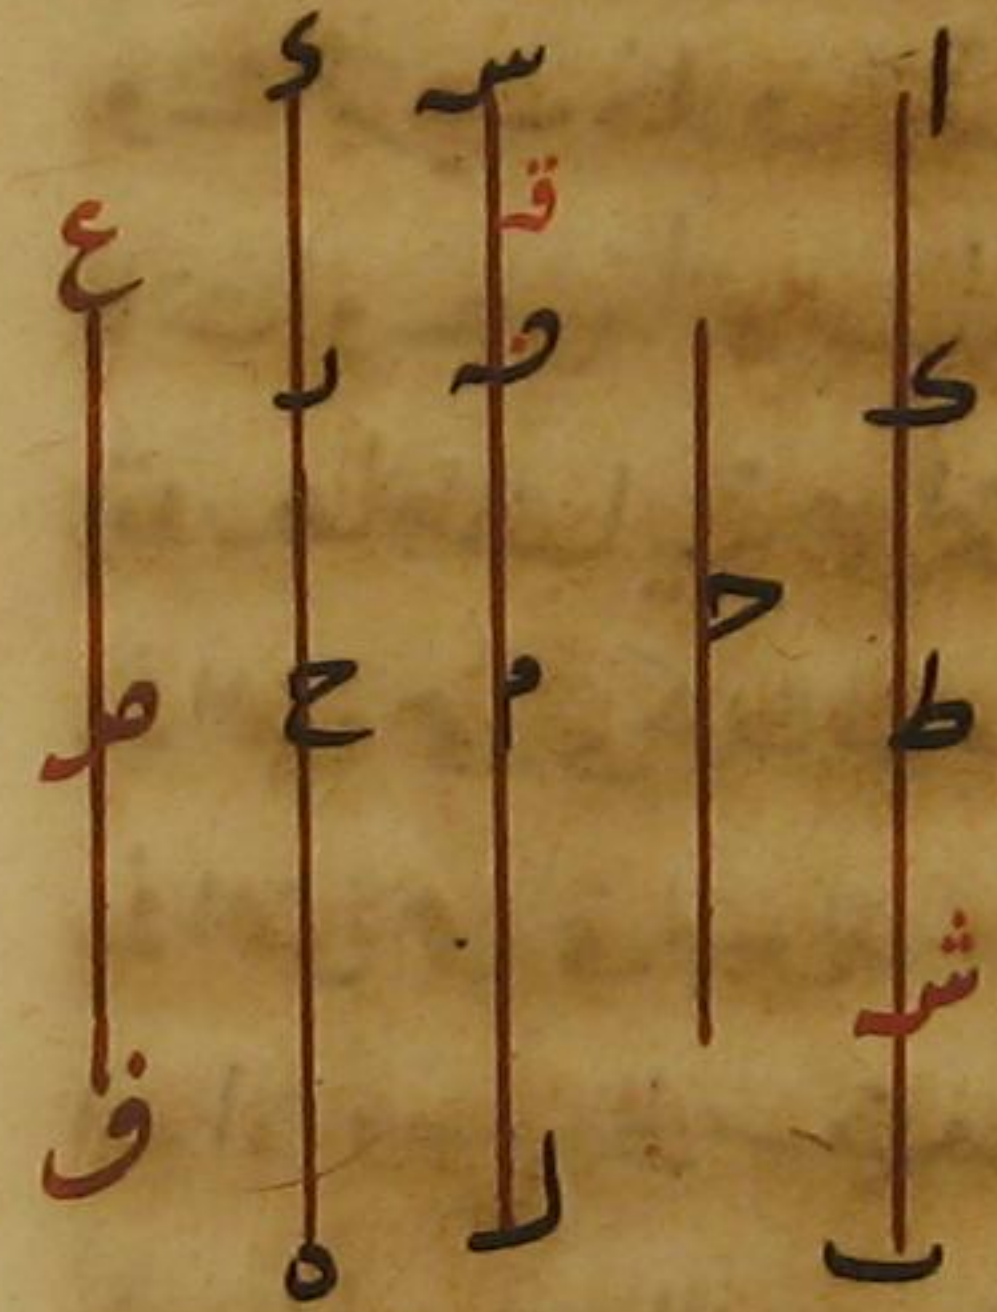 ا
ك
ط
ش
ب
ج
س
ق
ن
م
ل
د
ر
ح
ه
ع
ص
ف